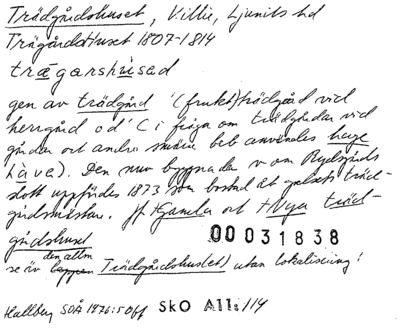 Trädgårdshuset, Villie, Ljunits hd
Trägårdshuset 1807-1814
trægarshùsad
gen av trädgård '(frukt)trädgård vid
herrgård o d' (i fråga om trädgårdar vid
gårdar och andra smärre beb användes hage
hàva). Den nuv byggnaden v om Rydsgårds
slott uppfördes 1873 som bostad åt godsets träd-
gårdsmästare. Jf Gamla och Nya träd-
gårdshuset
00031838
den allm
se äv Trädgårdshuset) utan lokalisering!
Hallberg SOÅ 1976:5 off SkO All:/14